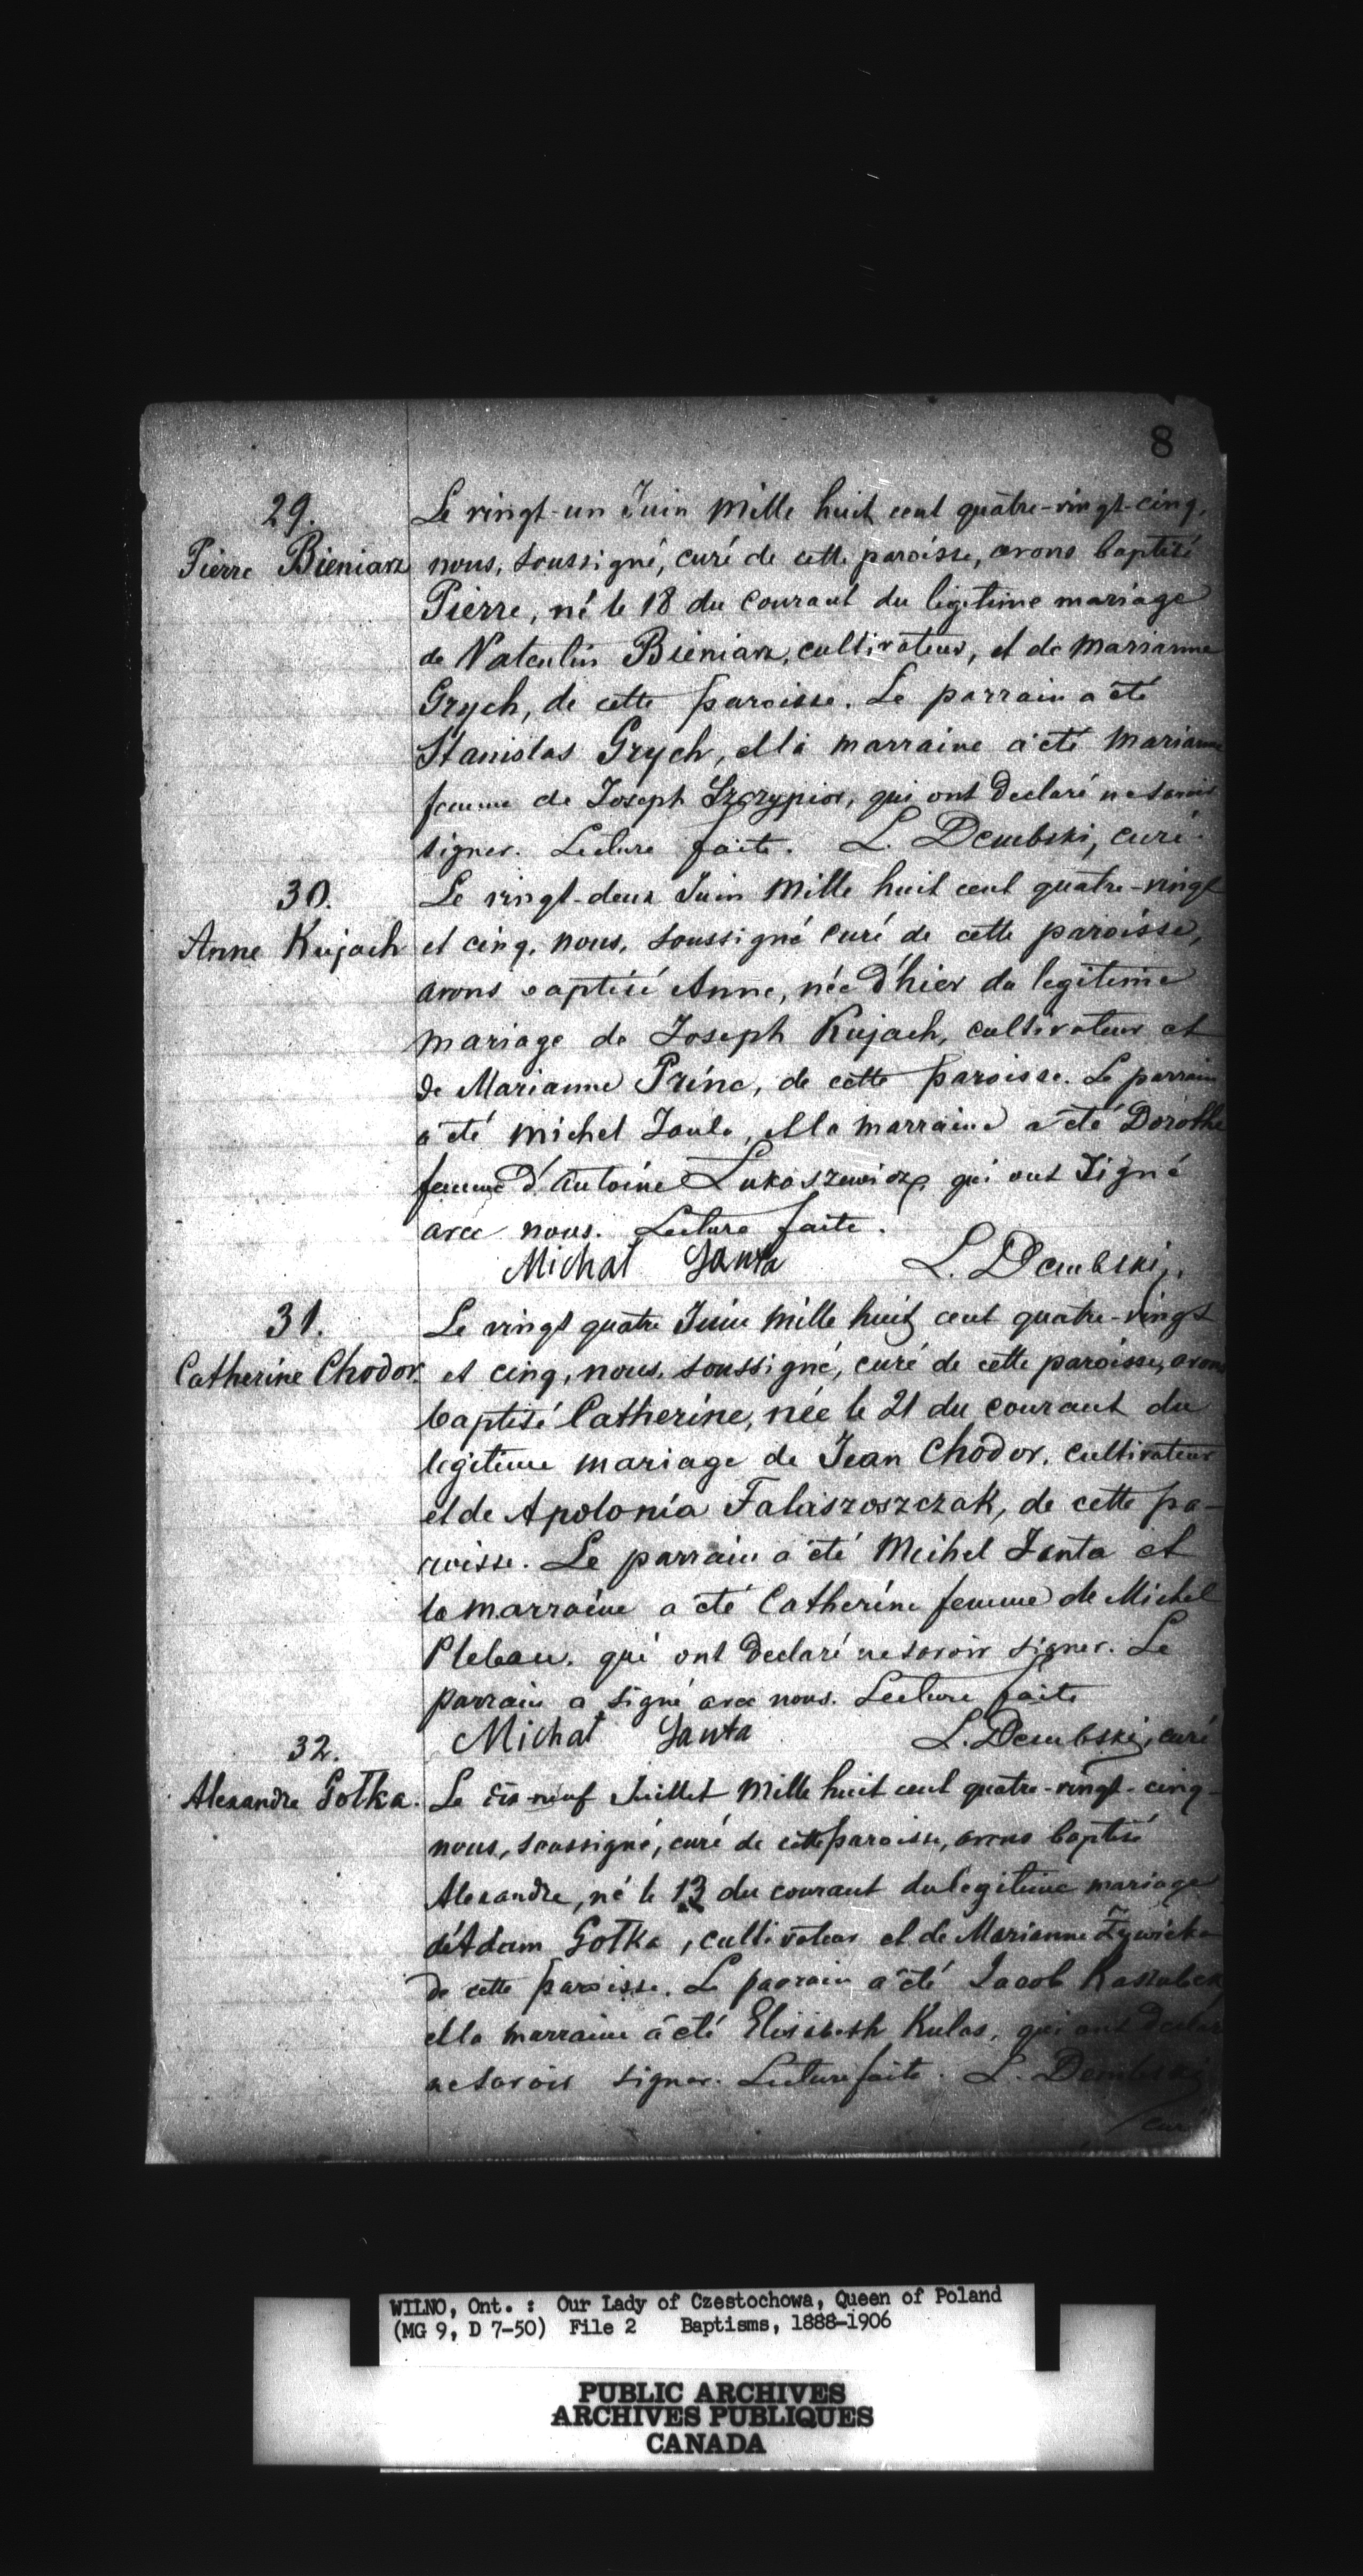 8
29.
Pierre Bieniarz
Le vingt-un Juin mille huit cent quatre-vingt-cinq,
nous, soussigné, curé de cette paroisse, avons baptisé
Pierre, né le 18 du courant du legitime mariage
de Valentin Bieniarz, cultivateur, et de Marianne
Grych, de cette paroisse. Le parrain a été
Stanislas Grych, et la marraine a été Marianne
femme de Joseph Szczypior, qui ont declaré ne savoir
signer. Lecture faite. L. Dembski, curé.
30.
Anne Kujach
Le vingt-deux Juin mille huit cent quatre-vingt
et cinq, nous, soussigné curé de cette paroisse,
avons baptisé Anne, née d'hier du legitime
mariage de Joseph Kujach, cultivateur et
de Marianne Princ, de cette paroisse. Le parrain
a été Michel Janta, et la marraine a été Dorothé
femme d'Antoine Lukaszewicz, qui ont signé
avec nous. Lecture faite.
Michał Janta L. Dembski,
31.
Catherine Chodor.
Le vingt quatre Juin mille huit cent quatre-vingt
et cinq, nous, soussigné, curé de cette paroisse, avons
baptisé Catherine, née le 21 du courant du
legitime mariage de Jean Chodor, cultivateur
et de Apolonia Falaszoszczak, de cette pa-
roisse. Le parrain a été Michel Janta et
la marraine a été Catherine femme de Michel
Pleban. qui ont declaré ne savoir signer. Le
parrain a signé avec nous. Lecture faite
Michał Janta L. Dembski, curé
32.
Alexandre Gołka.
Le dix-neuf Juillet mille huit cent quatre-vingt-cinq
nous, soussigné, curé de cette paroisse, avons baptisé
Alexandre, né le 13 du courant du legitime mariage
d'Adam Gołka, cultivateur et de Marianne
de cette paroisse. Le parrain a été Jacob
et la marraine a été Elisabeth Kulas, qui ont declaré
ne savoir signer. Lecture faite. L. Dembski
curé
WILNO, Ont. : Our Lady of Czestochowa, Queen of Poland
(MG 9, D 7-50) File 2 Baptisms, 1888-1906
PUBLIC ARCHIVES
ARCHIVES PUBLIQUES
CANADA